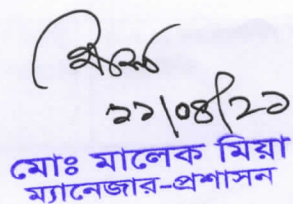 ২১/০৪/২১
মোঃ মালেক মিয়া
ম্যানেজার-প্রশাসন